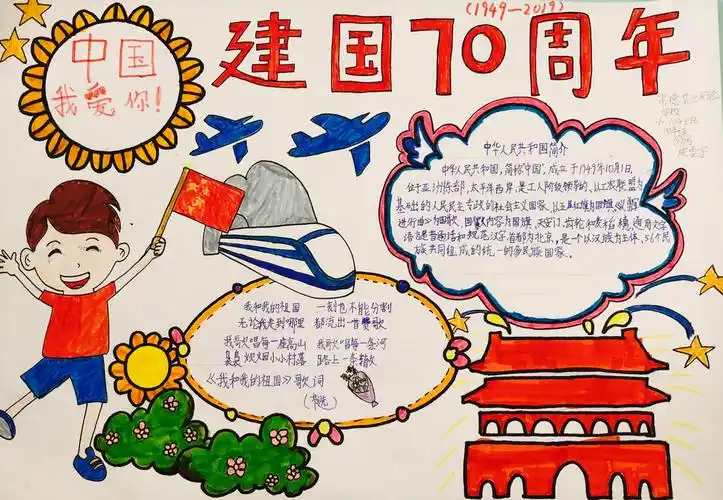 (1949—2019)
建国70周年
中国
我爱你!
中华人民共和国简介
中华人民共和国,简称"中国",成立于1949年10月1日,
位于亚洲东部,太平洋西岸,是工人阶级领导的、以工农联盟为
基础的人民民主专政的社会主义国家,以五星红旗为国旗,义勇军
进行曲》为国歌,国徽内容为国旗、天安门、齿轮和麦稻穗,通用文字
语言是普通话和规范汉字,首都为北京,是一个以汉族为主体、56个民
族共同组成的统一的多民族国家。
我和我的祖国 一刻也不能分割
无论我走到哪里 都流出一首赞歌
我歌唱每一座高山 我歌唱每一条河
袅袅炊烟小小村落 路上一条辙
《我和我的祖国》歌词
(节选)